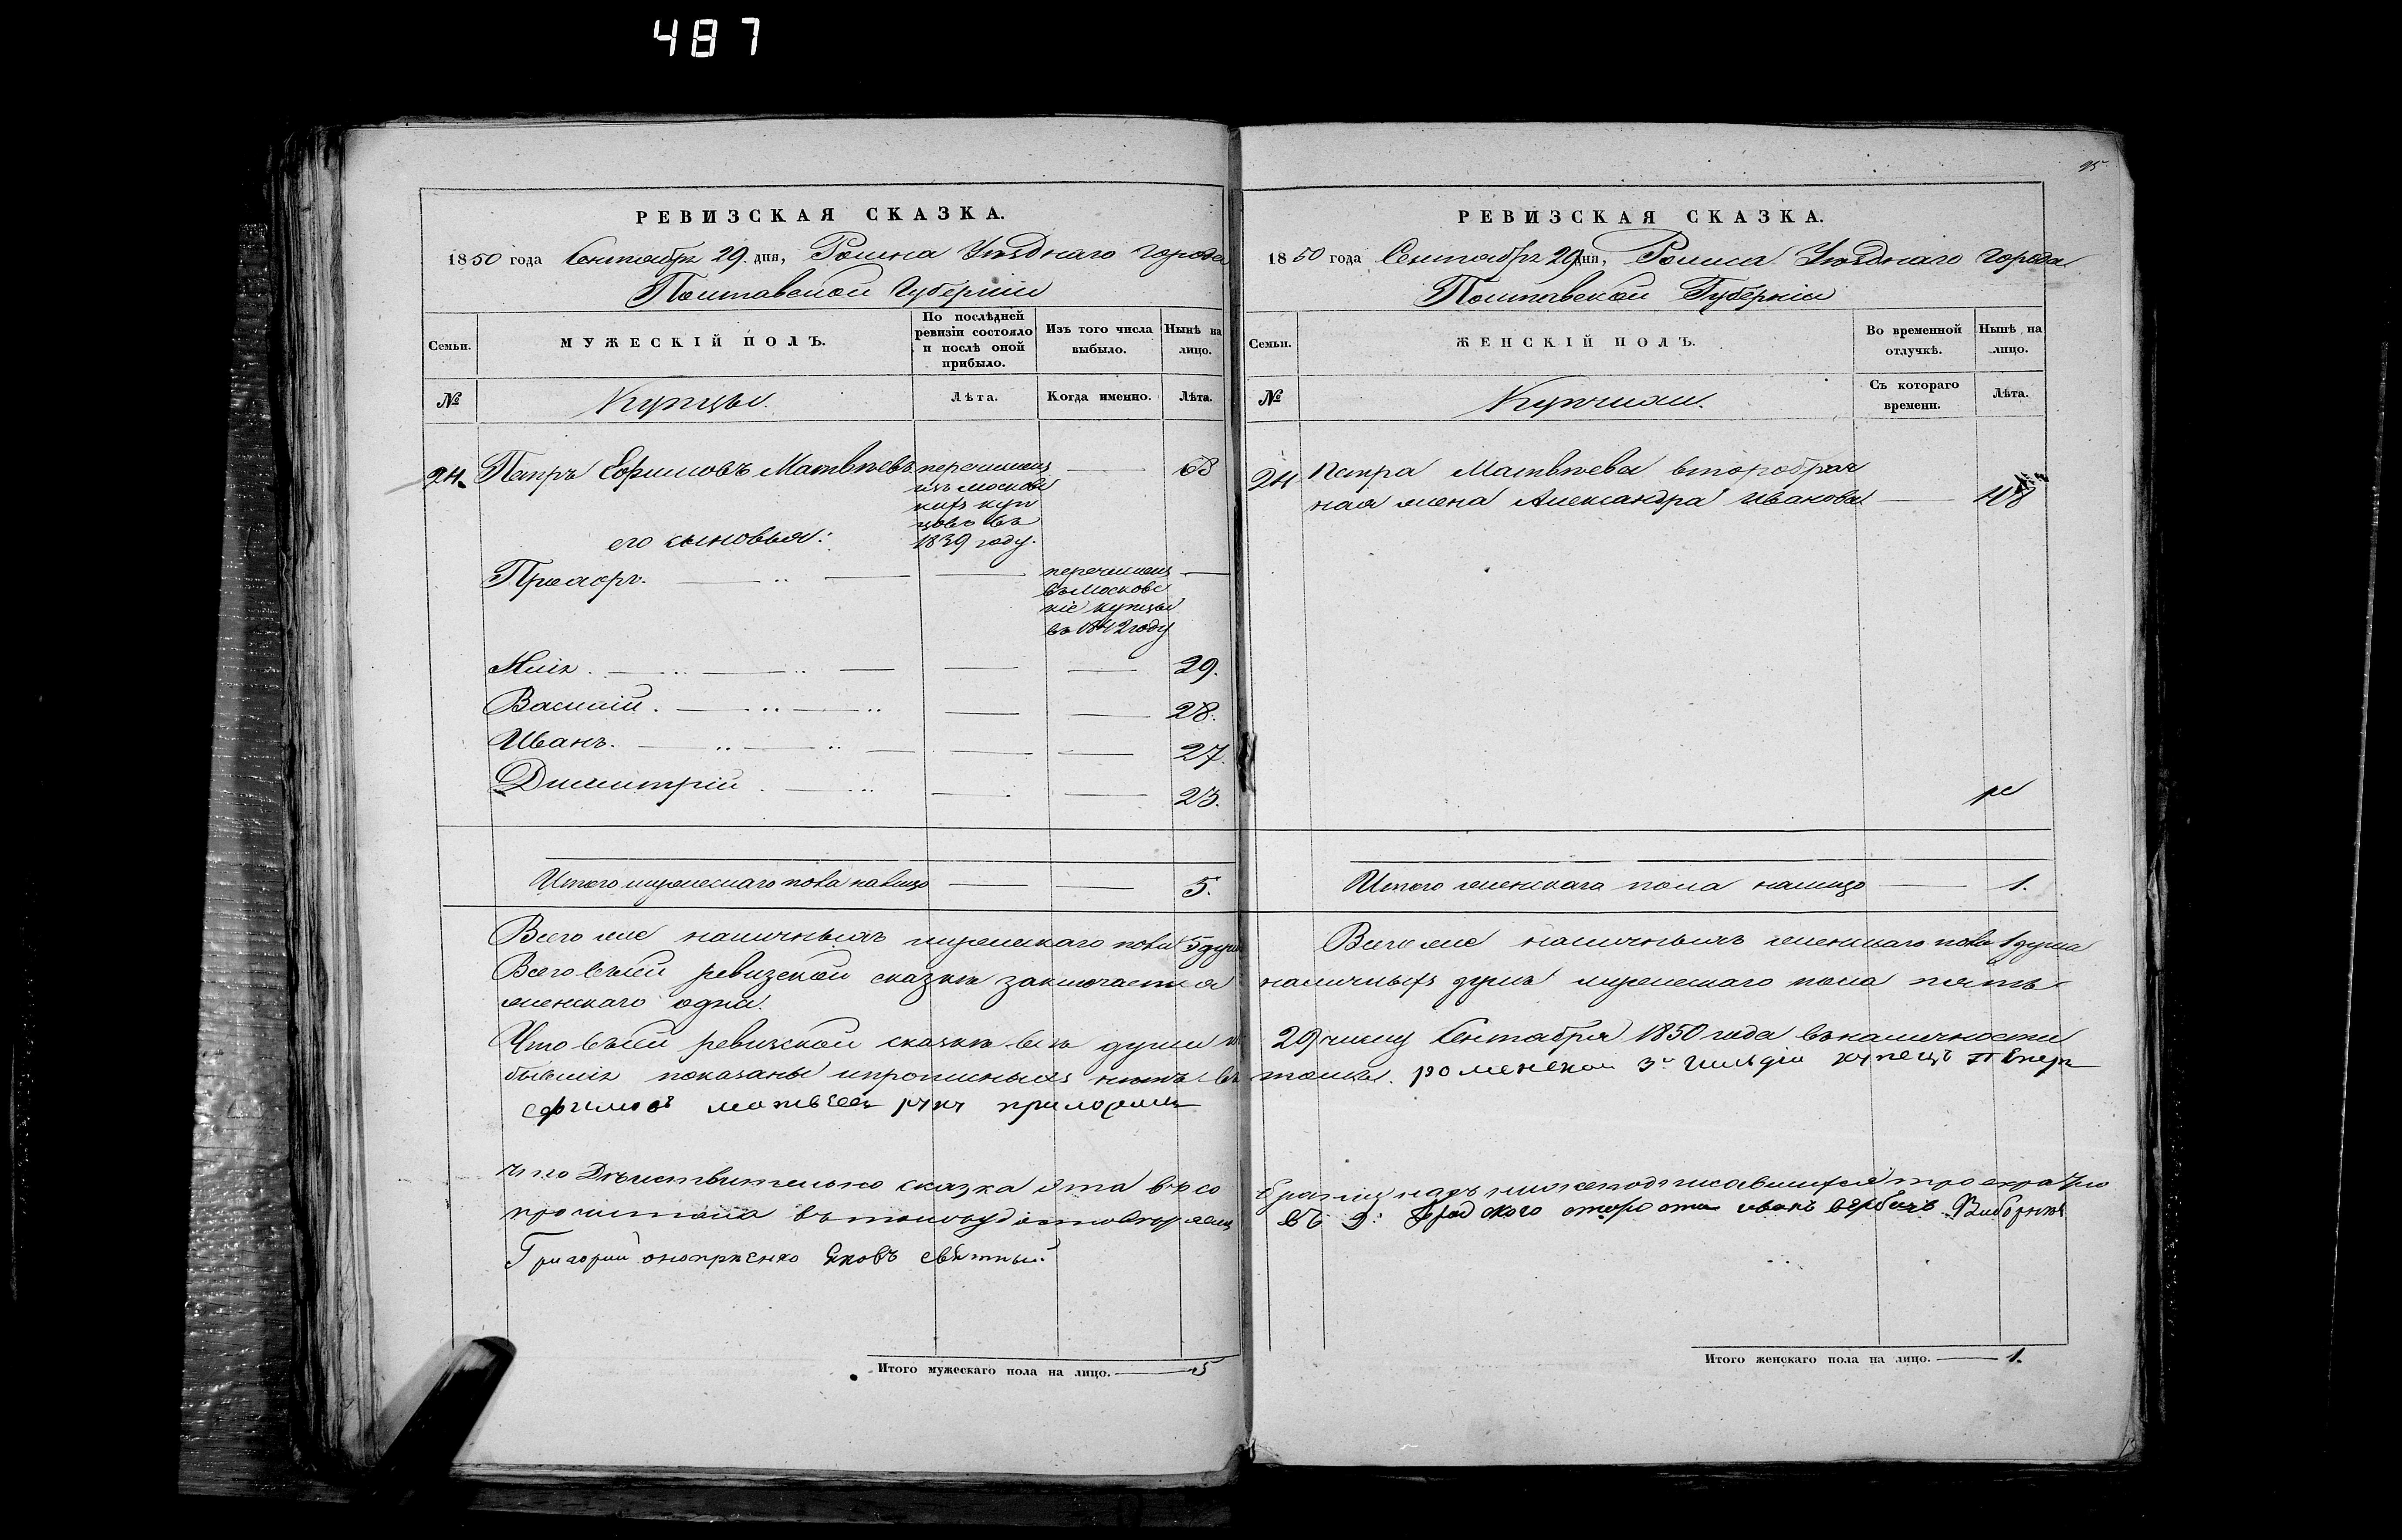 487
РЕВИЗСКАЯ СКАЗКА.
1850 года Сентября 29 дня, Ромна Уѣзднаго города
Полтавской Губерніи
Семьи.
МУЖЕСКІЙ ПОЛЪ.
По послѣдней ревизіи состояло и послѣ оной прибыло.
Изъ того числа выбыло.
Нынѣ на лицо.
№
Купцы.
Лѣта.
Когда именно.
Лѣта.
24. Петръ Ефимовъ Матвѣевъ
перечислены
изъ московс
кихъ куп
цовъ въ
1839 году.
68
его сыновья:
перечислен
въ Московс
кіе купцы
въ 1842 году
29.
Василій.
28.
Иванъ.
27.
Димитрій
23.
Итого мужескаго пола налицо 5.
Всего же наличныхъ мужескаго пола 5 душъ
Всего въ сей ревизской сказкѣ заключается
женскаго одна.
Что въ сей ревизской сказкѣ всѣ души к
бывшіе показаны и прописныхъ нѣтъ въ
ефимовъ матвеев руку приложилъ
что Дѣйствительно сказка эта въ со
прочитана въ томъ удостовѣряемъ
Григорий оноприенко Яковъ
Итого мужескаго пола на лицо. 5
95
РЕВИЗСКАЯ СКАЗКА.
1850 года Сентября 29 дня, Ромна Уѣзднаго города
Полтавской Губерніи
Семьи.
ЖЕНСКІЙ ПОЛЪ.
Во временной отлучкѣ.
Нынѣ на лицо.
№
Купчихи.
Съ котораго времени.
Лѣта.
24 Петра Матвѣева второбрач
ная жена Александра Иванова 48
Итого женскаго пола налицо 1.
Всего же наличныхъ женскаго пола 1 душа
наличныхъ душъ мужескаго пола пять
29 числу Сентября 1850 года въ наличности
роменской 3й гильдіи купецъ Петръ
браніи нижеподписавшихся троекратно
Городского старосты иванъ
Итого женскаго пола на лицо. 1.